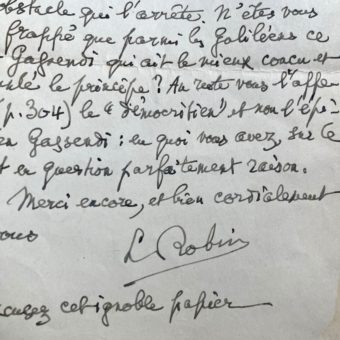 obstacle qui l'arrête. N'êtes vous
frappé que parmi les Galiléens ce
Gassendi qui ait le mieux conçu et
le principe ? Au reste vous l'appe
(p. 304) le "démocritien" et non l'épi
en Gassendi : en quoi vous avez, sur le
t en question parfaitement raison.
Merci encore, et bien cordialement
vous
L Robin
cusez cet ignoble papier